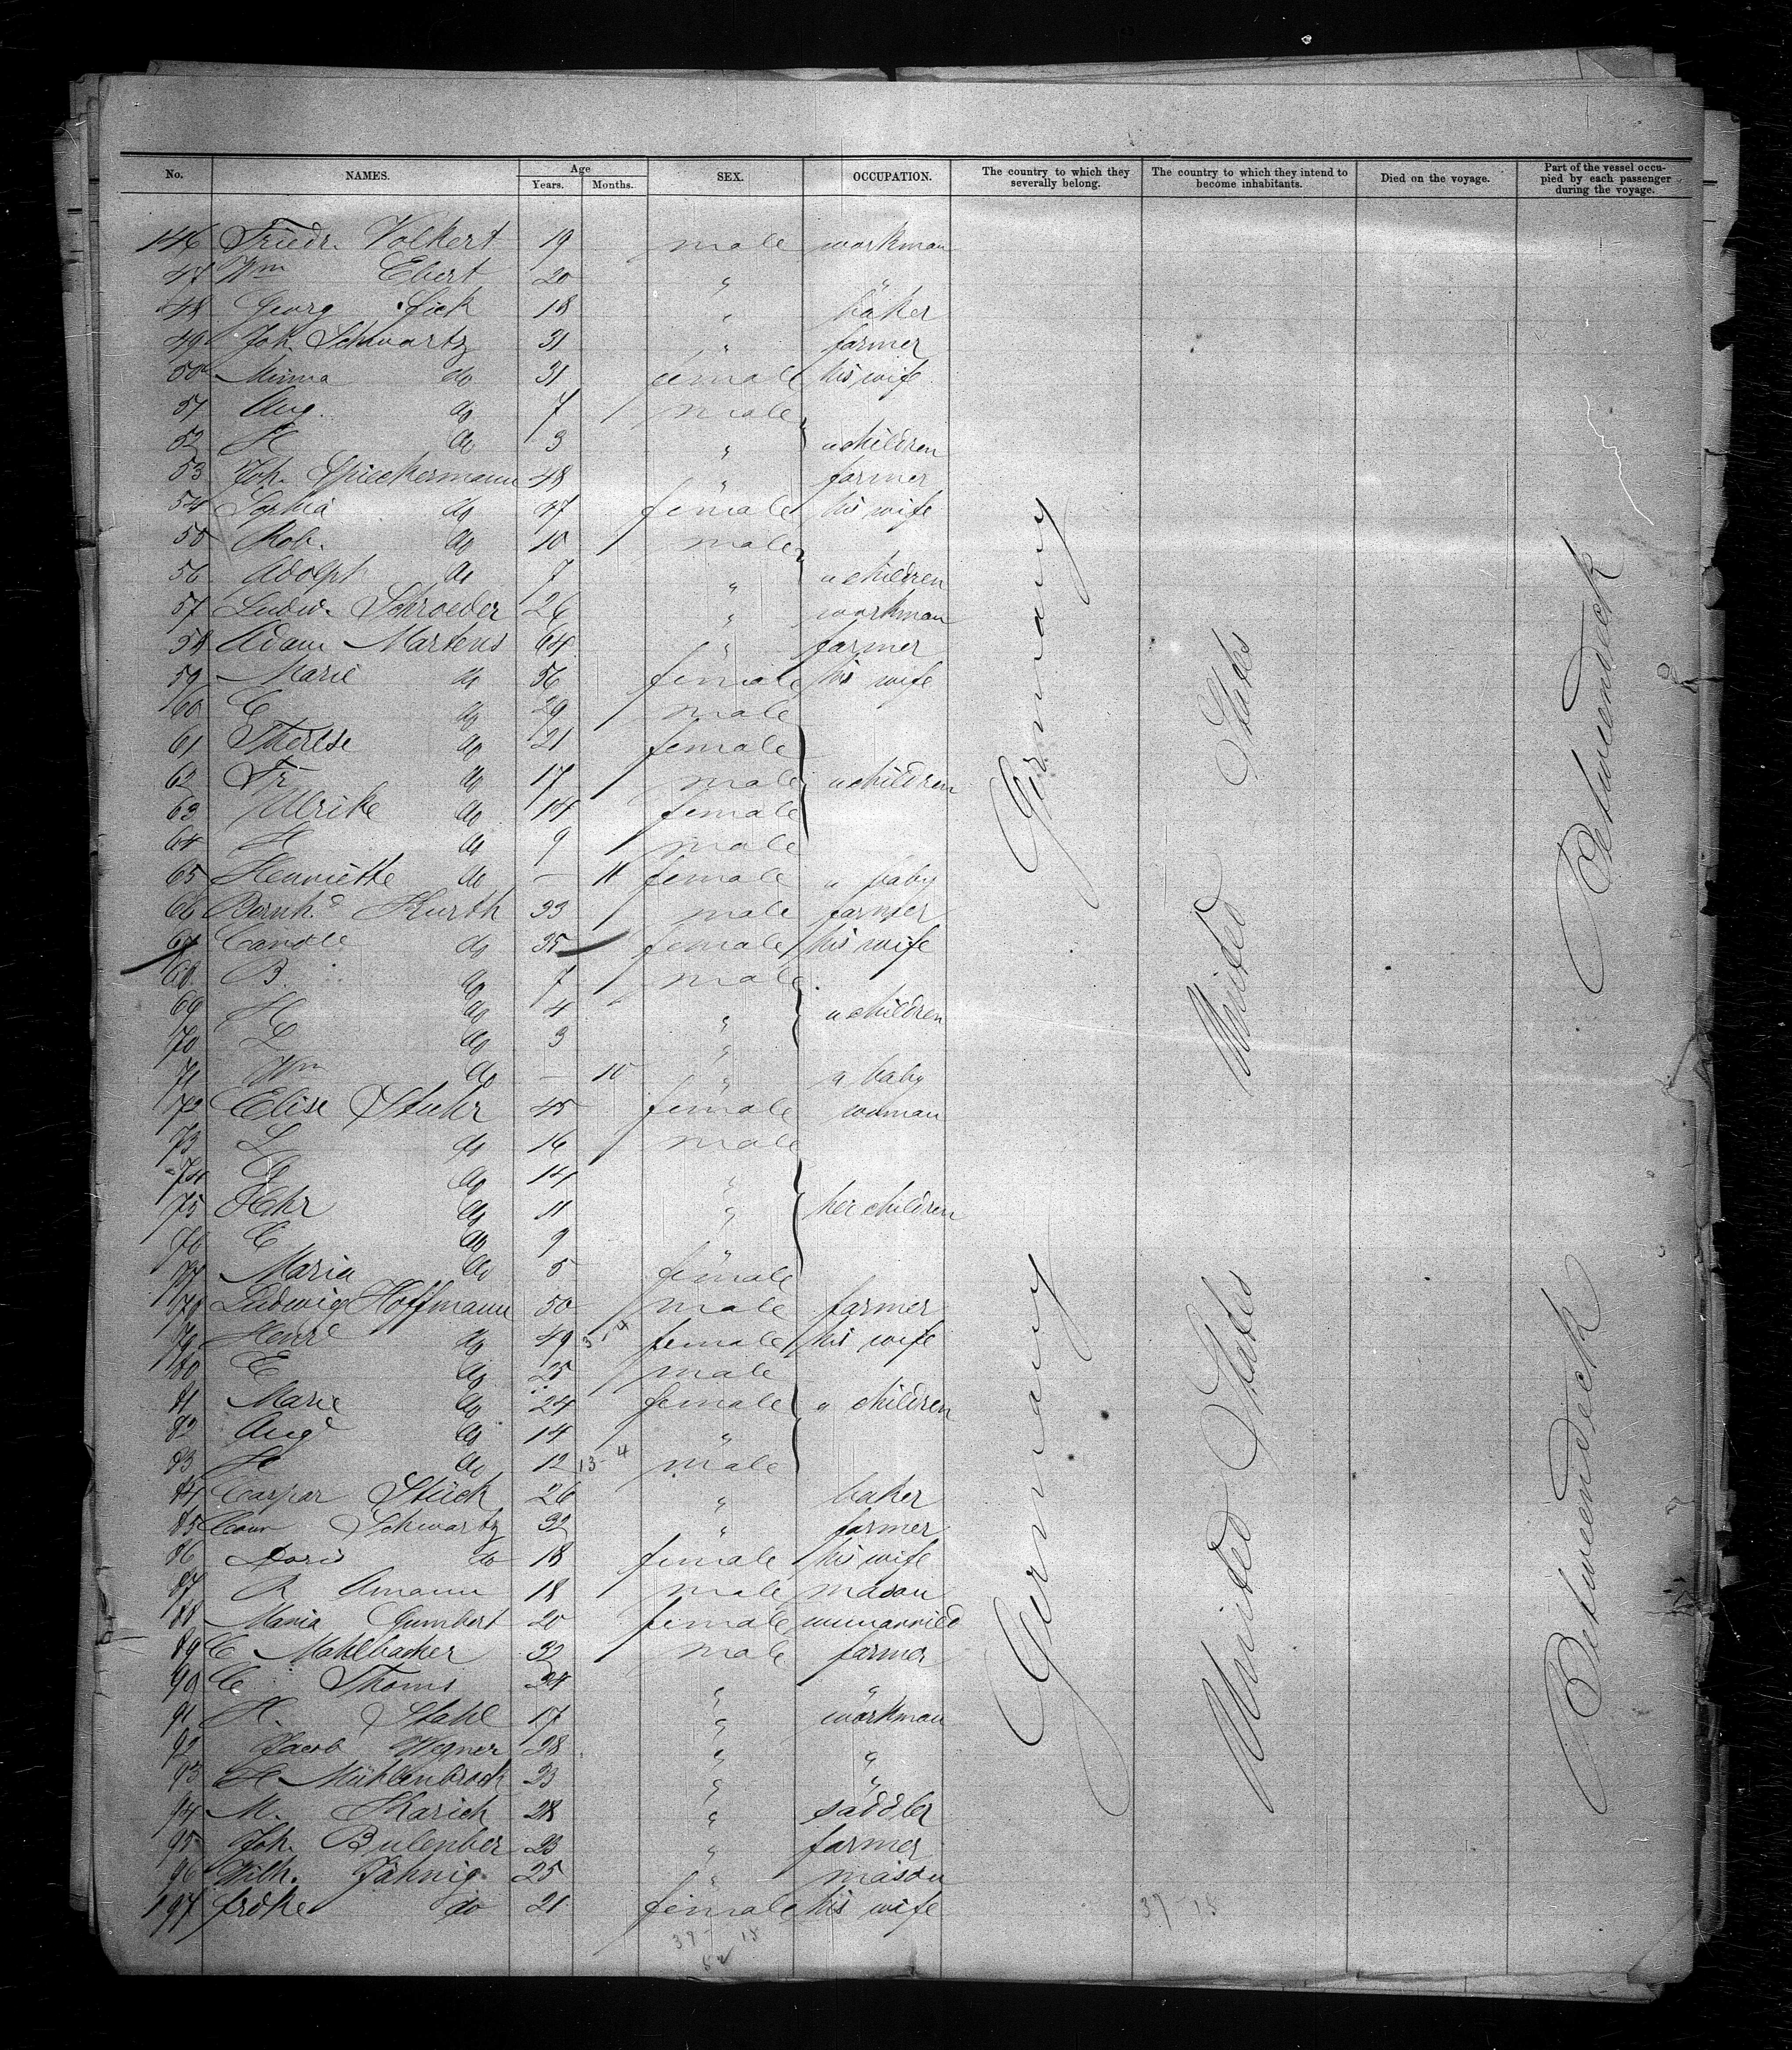 No. NAMES. Age Years. Months. SEX. OCCUPATION. The country to which they severally belong. The country to which they intend to become inhabitants. Died on the voyage. Part of the vessel occupied by each passenger during the voyage.
146 Friedr. Volkert 19 male workman
47 Wm Ebert 20 " "
48 Georg Sick 18 " baker
49 Joh. Schwartz 31 " farmer
50 Minna do 31 female his wife
51 Aug. do 7 male
52 H do 3 " " children
53 Joh. Spieckermann 48 " farmer
54 Sophia do 47 female his wife
55 Rob. do 10 male
56 Adolph do 7 " " children
57 Ludw. Schroeder 26 " workman
58 Adam Martens 64 " farmer
59 Marie do 56 female his wife
60 C do 29 male
61 Therese do 21 female
62 Fr do 17 male " children
63 Ulrike do 14 female
64 H do 9 male
65 Henriette do — 11 female " baby
66 Bernhd Kurth 33 male farmer
67 Carole do 35 female his wife
68 B. do 7 male
69 H do 4 " " children
70 L do 3 "
71 Wm do — 10 " a baby
72 Elise Stuhr 45 female woman
73 L do 16 male
74 C do 14 "
75 Hehr do 11 " her children
76 C do 9
77 Maria do 5 female
78 Ludwig Hoffmann 50 male farmer
79 Henre do 49 female his wife
80 E do 25 male
81 Marie do 24 female " children
82 Aug do 14 "
83 H do 12 13-4 male
84 Caspar Stück 26 " baker
85 Conr Schwartz 32 " farmer
86 Doris do 18 female his wife
87 R Amann 18 male mason
88 Maria Gumbert 20 female unmarried
89 C Mahlbacher 32 male farmer
90 C Thoms 34 " "
91 H Stahl 17 " workman
92 Jacob Wegner 28 " "
93 H Mühlenbrock 23 " "
94 M. Karich 28 " saddler
95 Joh. Bulenber 23 " farmer
96 Wilh. Jähnig 25 " mason
197 frdke do 21 female his wife
Germany
United States
Betweendeck
Germany
United States
Betweendeck
37 15
37 15
52